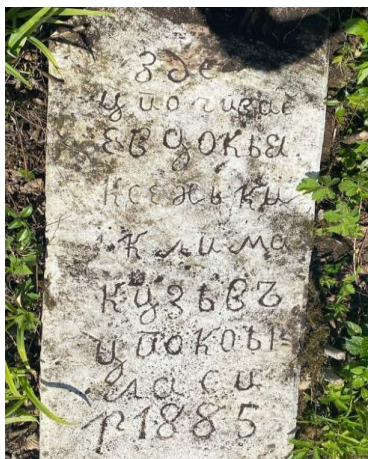 зде
упочиває
Евдокыя
Ксеньки
клима
кузьвъ
упокоы
ласи
р1885